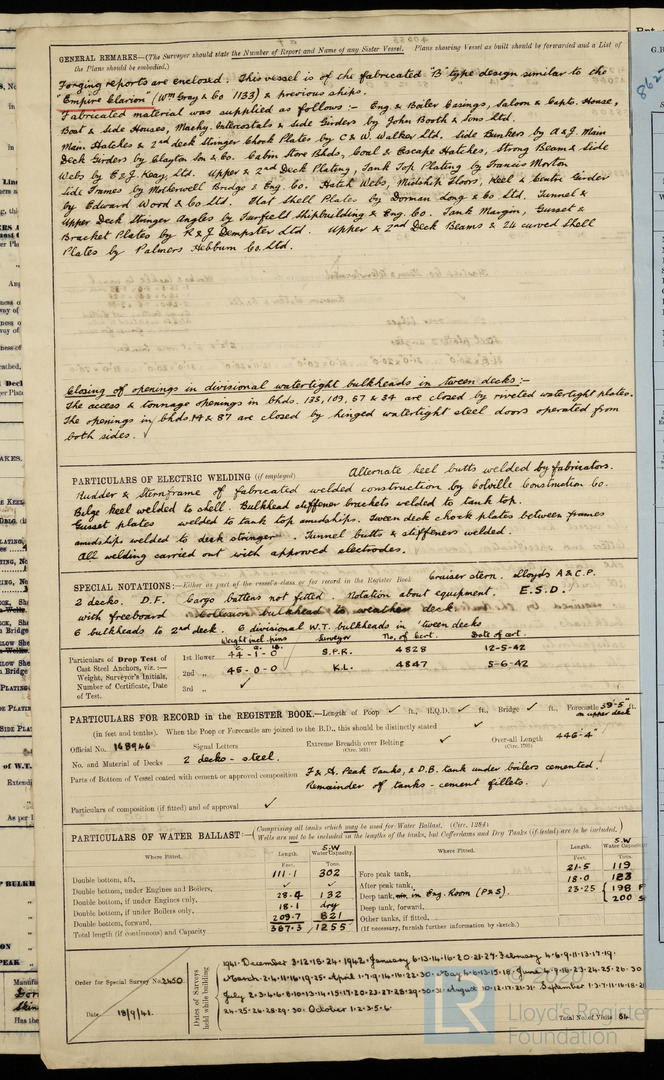 GENERAL REMARKS—(The Surveyor should state the Number of Report and Name of any Sister Vessel. Plans showing Vessel as built should be forwarded and a List of
the Plans should be embodied.)
Forging reports are enclosed. This vessel is of the fabricated "B" type design similar to the
"Empire Clarion" (Wm Gray & Co 1133) & previous ships.
Fabricated material was supplied as follows :- Eng. & Boiler Casings, Saloon & Capts. House,
Boat & Side Houses, Machy. Intercostals & Side Girders by John Booth & Sons Ltd.
Main Hatches & 2nd deck Stringer Chock Plates by C & W. Walker Ltd. Side Bunkers by A & J. Main
Deck Girders by Clayton Son & Co. Cabin Store Bhds, Coal & Escape Hatches, Strong Beams & Side
Webs by E & J. Keay, Ltd. Upper & 2nd Deck Plating, Tank Top Plating by Francis Morton
Side Frames by Motherwell Bridge & Eng. Co. Hatch Webs, Midship Floors, Keel & Centre Girder
by Edward Wood & Co Ltd. Flat Shell Plates by Dorman Long & Co Ltd. Tunnel &
Upper Deck Stringer Angles by Fairfield Shipbuilding & Eng. Co. Tank Margin, Gusset &
Bracket Plates by R & J. Dempster Ltd. Upper & 2nd Deck Beams & 24 curved Shell
Plates by Palmers Hebburn Co. Ltd.
Closing of openings in divisional watertight bulkheads in tween decks :-
The access & tonnage openings in bhds. 133, 109, 57 & 34 are closed by riveted watertight plates.
The openings in bhds. 14 & 87 are closed by hinged watertight steel doors operated from
both sides. ✓
PARTICULARS OF ELECTRIC WELDING (if employed) Alternate keel butts welded by fabricators.
Rudder & Sternframe of fabricated welded construction by Colville Construction Co.
Bilge keel welded to shell. Bulkhead stiffener brackets welded to tank top.
Gusset plates welded to tank top amidships. Tween deck chock plates between frames
amidships welded to deck stringer. Tunnel butts & stiffeners welded.
All welding carried out with approved electrodes.
SPECIAL NOTATIONS :—Either as part of the vessel's class or for record in the Register Book Cruiser stern. Lloyds A & C.P.
2 decks. D.F. Cargo battens not fitted. Notation about equipment. E.S.D.
with freeboard Collision bulkhead to weather deck
6 bulkheads to 2nd deck. 6 divisional W.T. bulkheads in 'tween decks
Weight incl. pins Surveyor No. of Cert. Date of cert.
Particulars of Drop Test of
Cast Steel Anchors, viz. :—
Weight, Surveyor's Initials,
Number of Certificate, Date
of Test.
1st Bower 44-1-0 S.P.R. 4828 12-5-42
2nd „ 45-0-0 K.L. 4847 5-6-42
3rd „ ✓
PARTICULARS FOR RECORD in the REGISTER BOOK.—Length of Poop ✓ ft., R.Q.D. ✓ ft., Bridge ✓ ft., Forecastle 39'-5" ft.
on upper deck
(in feet and tenths). When the Poop or Forecastle are joined to the B.D., this should be distinctly stated ✓
Official No. 168946 Signal Letters Extreme Breadth over Belting ✓ Over-all Length 446'-4"
No. and Material of Decks 2 decks - steel.
Parts of Bottom of Vessel coated with cement or approved composition F & A. Peak Tanks, & D.B. tank under boilers cemented.
Remainder of tanks - cement fillets.
Particulars of composition (if fitted) and of approval ✓
PARTICULARS OF WATER BALLAST:— (Comprising all tanks which may be used for Water Ballast. (Circ. 1284)
Wells are not to be included in the lengths of the tanks, but Cofferdams and Dry Tanks (if tested) are to be included.)
Where Fitted. Length. S.W Water Capacity. Where Fitted. Length. S.W Water Capacity.
Feet. Tons. Feet. Tons.
Double bottom, aft, 111.1 302 Fore peak tank, 21.5 119
Double bottom, under Engines and Boilers, ✓ ✓ After peak tank, 18.0 123
Double bottom, if under Engines only, 28.4 132 Deep tank, in Eng. Room (P & S). 23.25 198 P
Double bottom, if under Boilers only, 18.1 dry Deep tank, forward, 200 S
Double bottom, forward, 209.7 821 Other tanks, if fitted,
Total length (if continuous) and Capacity 367.3 1255 (If necessary, furnish further information by sketch.)
Order for Special Survey No. 2450
Date 18/9/41.
Dates of Surveys held while building
1941. December 3.12.18.24. 1942. January 6.13.14.16.20.21.27. February 4.6.9.11.13.17.19.
March. 2.4.11.16.19.25. April 1.7.9.14.16.22.30. May 4.6.13.15.18. June 4.9.14.23.24.25.26.30
July 2.3.4.6.8.10.13.14.15.17.20.23.27.28.29.30.31. August 10.12.17.21.31. September 1.3.7.11.14.18.21
24.25.26.28.29.30. October 1.2.3.5.6.
Total No. of Visits 84
© 2020
LR
Lloyd's Register
Foundation